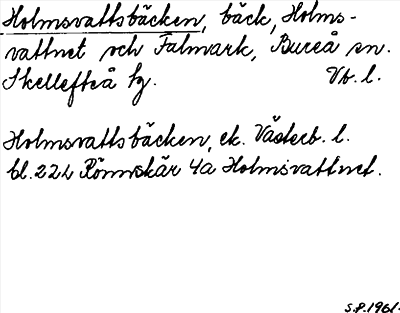 Holmsvattsbäcken, bäck, Holms-
vattnet och Falmark, Bureå sn.
Skellefteå tg. Vb. l.
Holmsvattsbäcken, ek. Västerb. l.
bl. 22L Rönnskär 4a Holmsvattnet.
S.P. 1961.